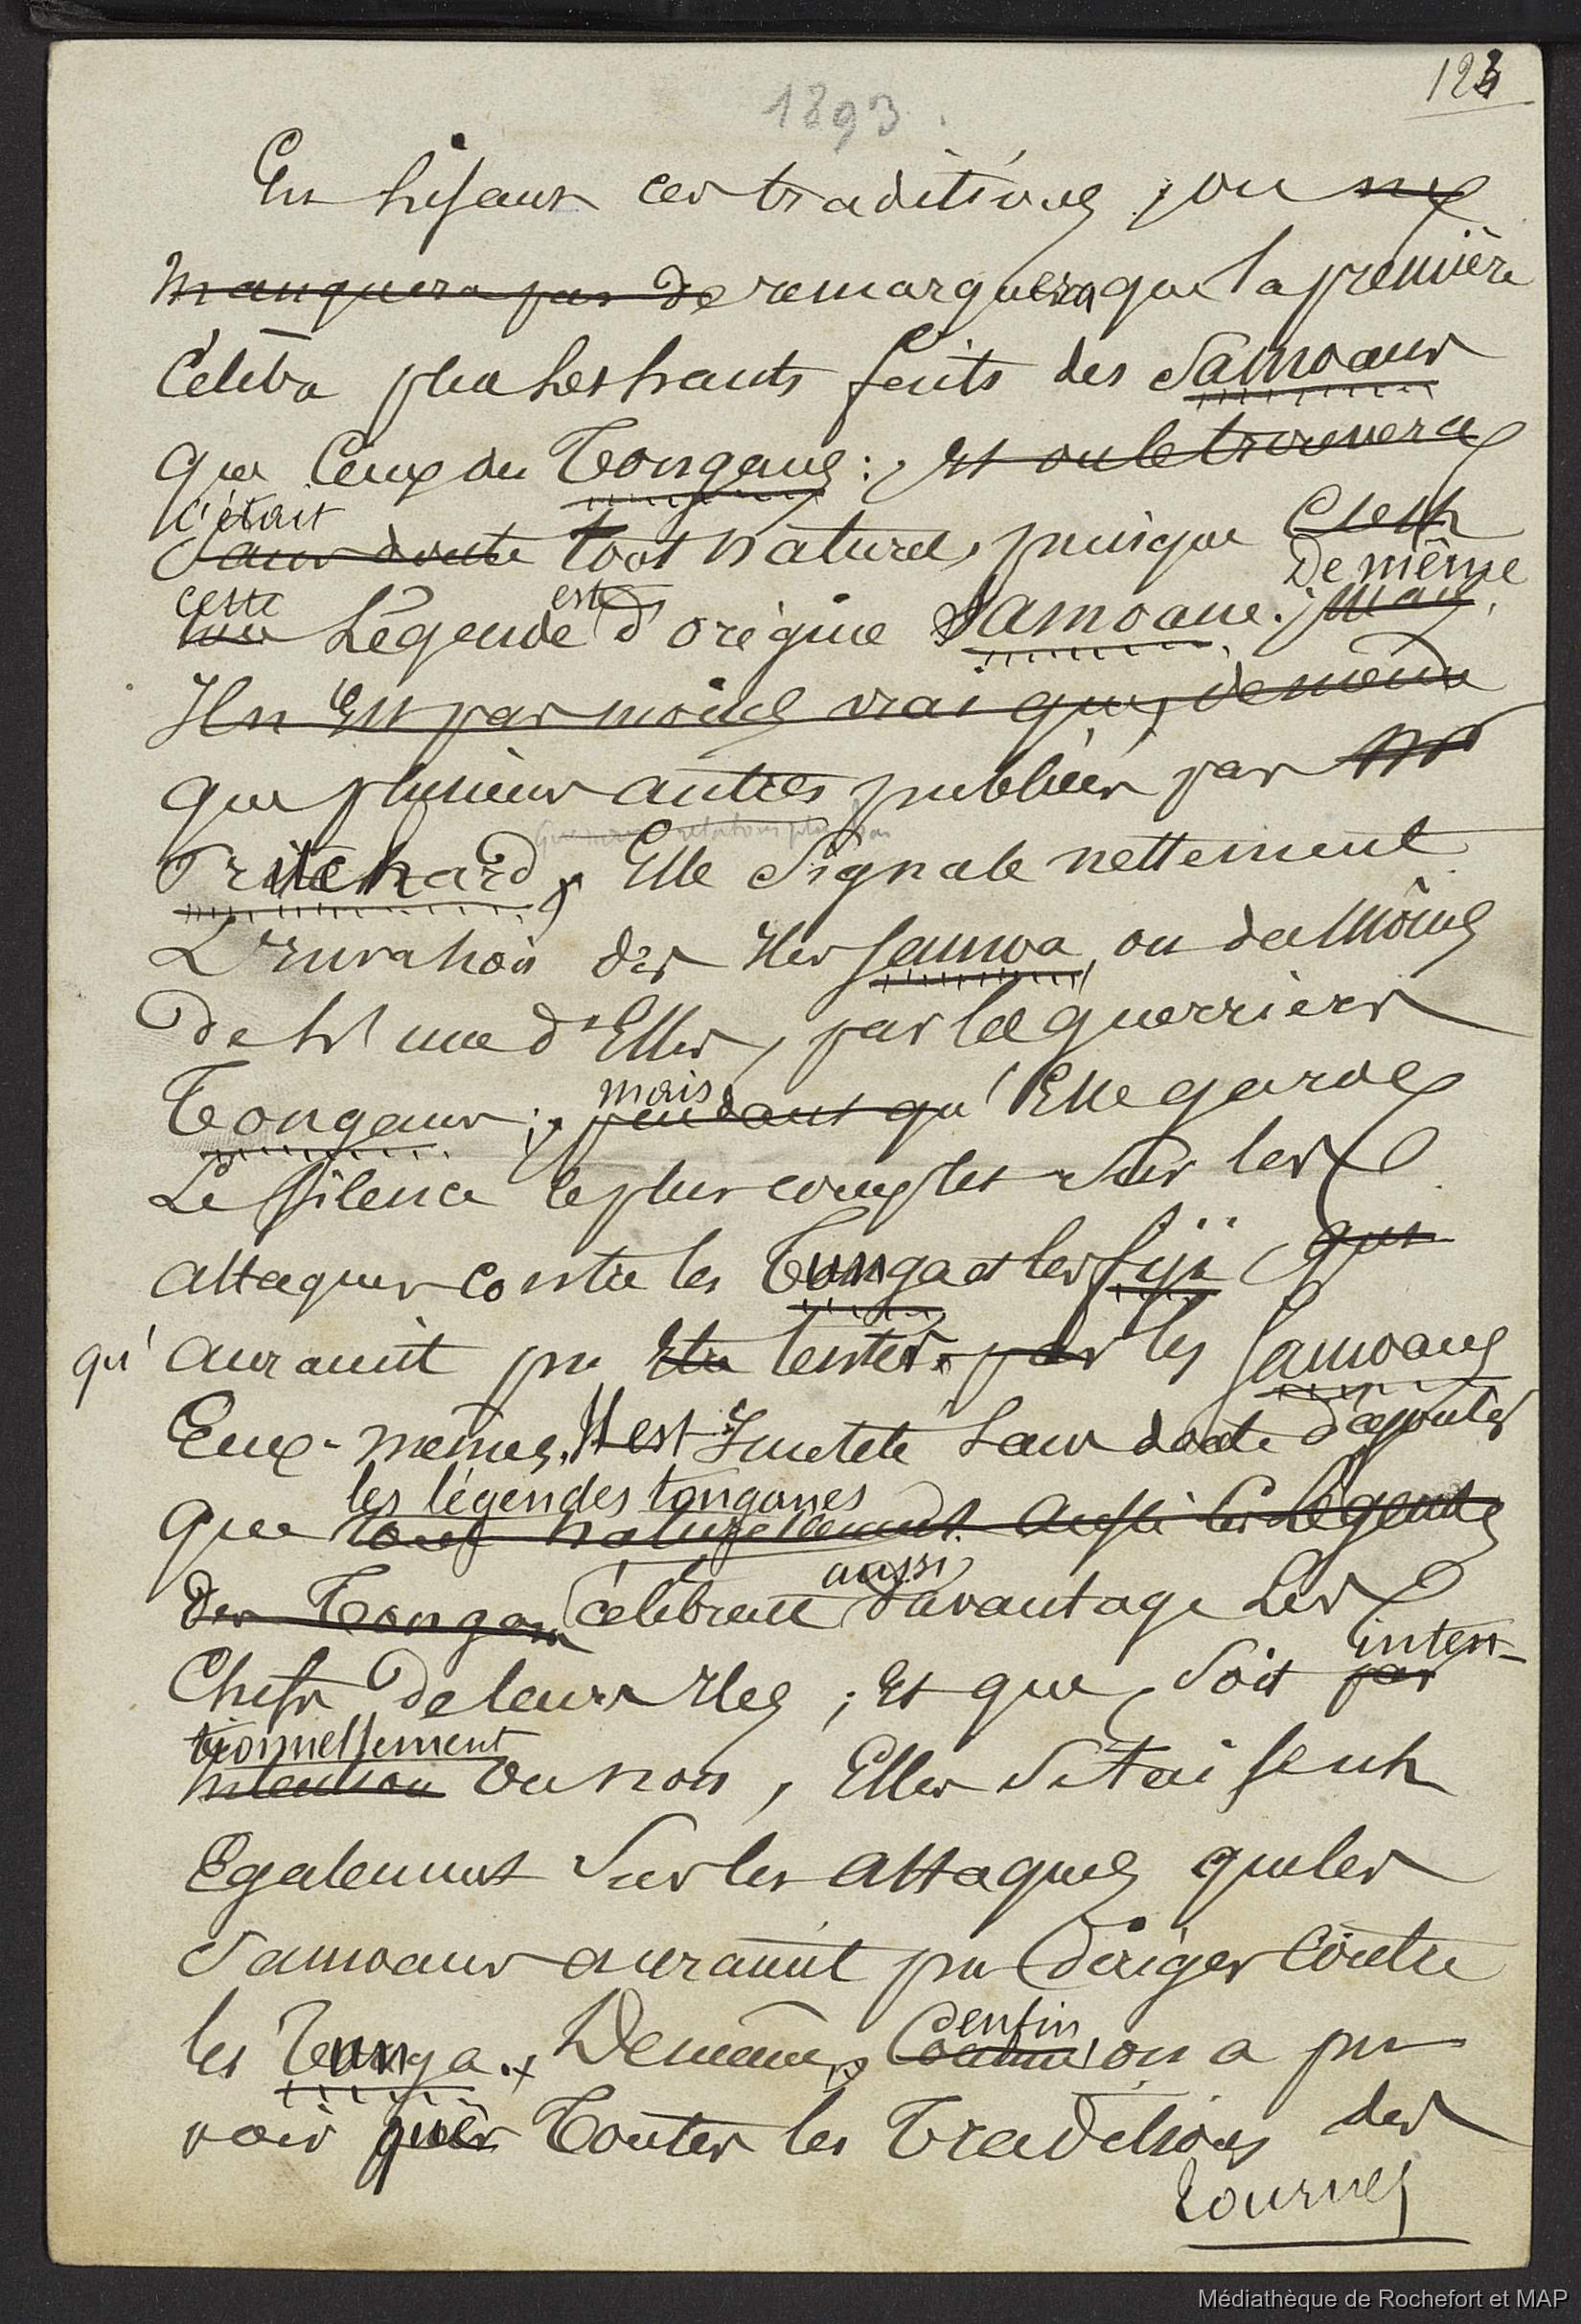 123
1893.
En lisant ces traditions, on ne
manquera pas de remarquera que la première
célèbre plus les hauts faits des Samoans
que ceux des Tongans : et on le trouvera
c'était
sans doute tout naturel, puisque c'est
de même
cette est
une légende d'origine Samoane. ; mais
Il n'en est pas moins vrai que, de même
que plusieurs autres publiées par Mr
Pritchard, Elle signale nettement
L'invasion des Iles Samoa, ou du moins
de l'une d'Elles, par les guerriers
mais
Tongans ; pendant qu'Elle garde
Le silence le plus complet sur les
attaques contre les Tunga et les Fiji, que
qu' auraient pu être tenter par les Samoans
Eux-mêmes. Il est Inutile sans doute d'ajouter
les légendes tonganes
que tout naturellement aussi les légendes
aussi
des Tongans célèbrent davantage les
inten-
Chefs de leurs Iles ; et que, soit par
tionnellement
intention ou non, Elles se taisent
Egalement sur les attaques que les
Samoans auraient pu diriger contre
enfin
les Tunga. De même, comme on a pu
voir que toutes les traditions des
tournez
Médiathèque de Rochefort et MAP